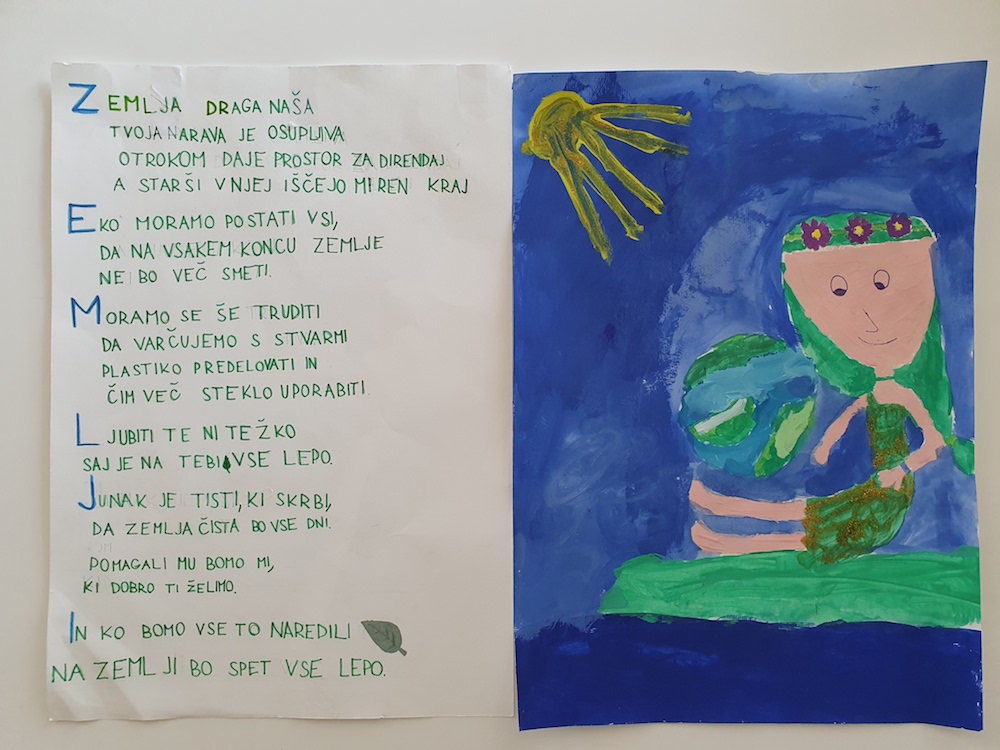 ZEMLJA DRAGA NAŠA
TVOJA NARAVA JE OSUPLJIVA
OTROKOM DAJE PROSTOR ZA DIRENDAJ
A STARŠI V NJEJ IŠČEJO MIREN KRAJ
EKO MORAMO POSTATI VSI,
DA NA VSAKEM KONCU ZEMLJE
NE BO VEČ SMETI.
MORAMO SE ŠE TRUDITI
DA VARČUJEMO S STVARMI
PLASTIKO PREDELOVATI IN
ČIM VEČ STEKLO UPORABITI.
LJUBITI TE NI TEŽKO
SAJ JE NA TEBI VSE LEPO.
JUNAK JE TISTI, KI SKRBI,
DA ZEMLJA ČISTA BO VSE DNI.
POMAGALI MU BOMO MI,
KI DOBRO TI ŽELIMO.
IN KO BOMO VSE TO NAREDILI
NA ZEMLJI BO SPET VSE LEPO.